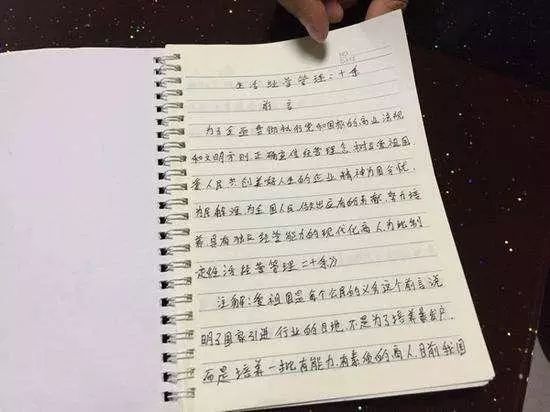 NO.
DATE
生活经营管理二十条
前言
为了全面贯彻执行党和国家的商业法规
和文明守则正确宣传经营理念,树立爱祖国
爱人民共创美好人生的企业精神为国分忧
为民解难为全国人民做出应有的贡献,努力培
养具有独立经营能力的现代化商人为此制
定生活经营管理二十条》
注解:爱祖国是每个公民的义务这个前言说
明了国家引进行业的目地,不是为了培养暴发户.
而是培养一批有能力,有素质的商人,目前我国